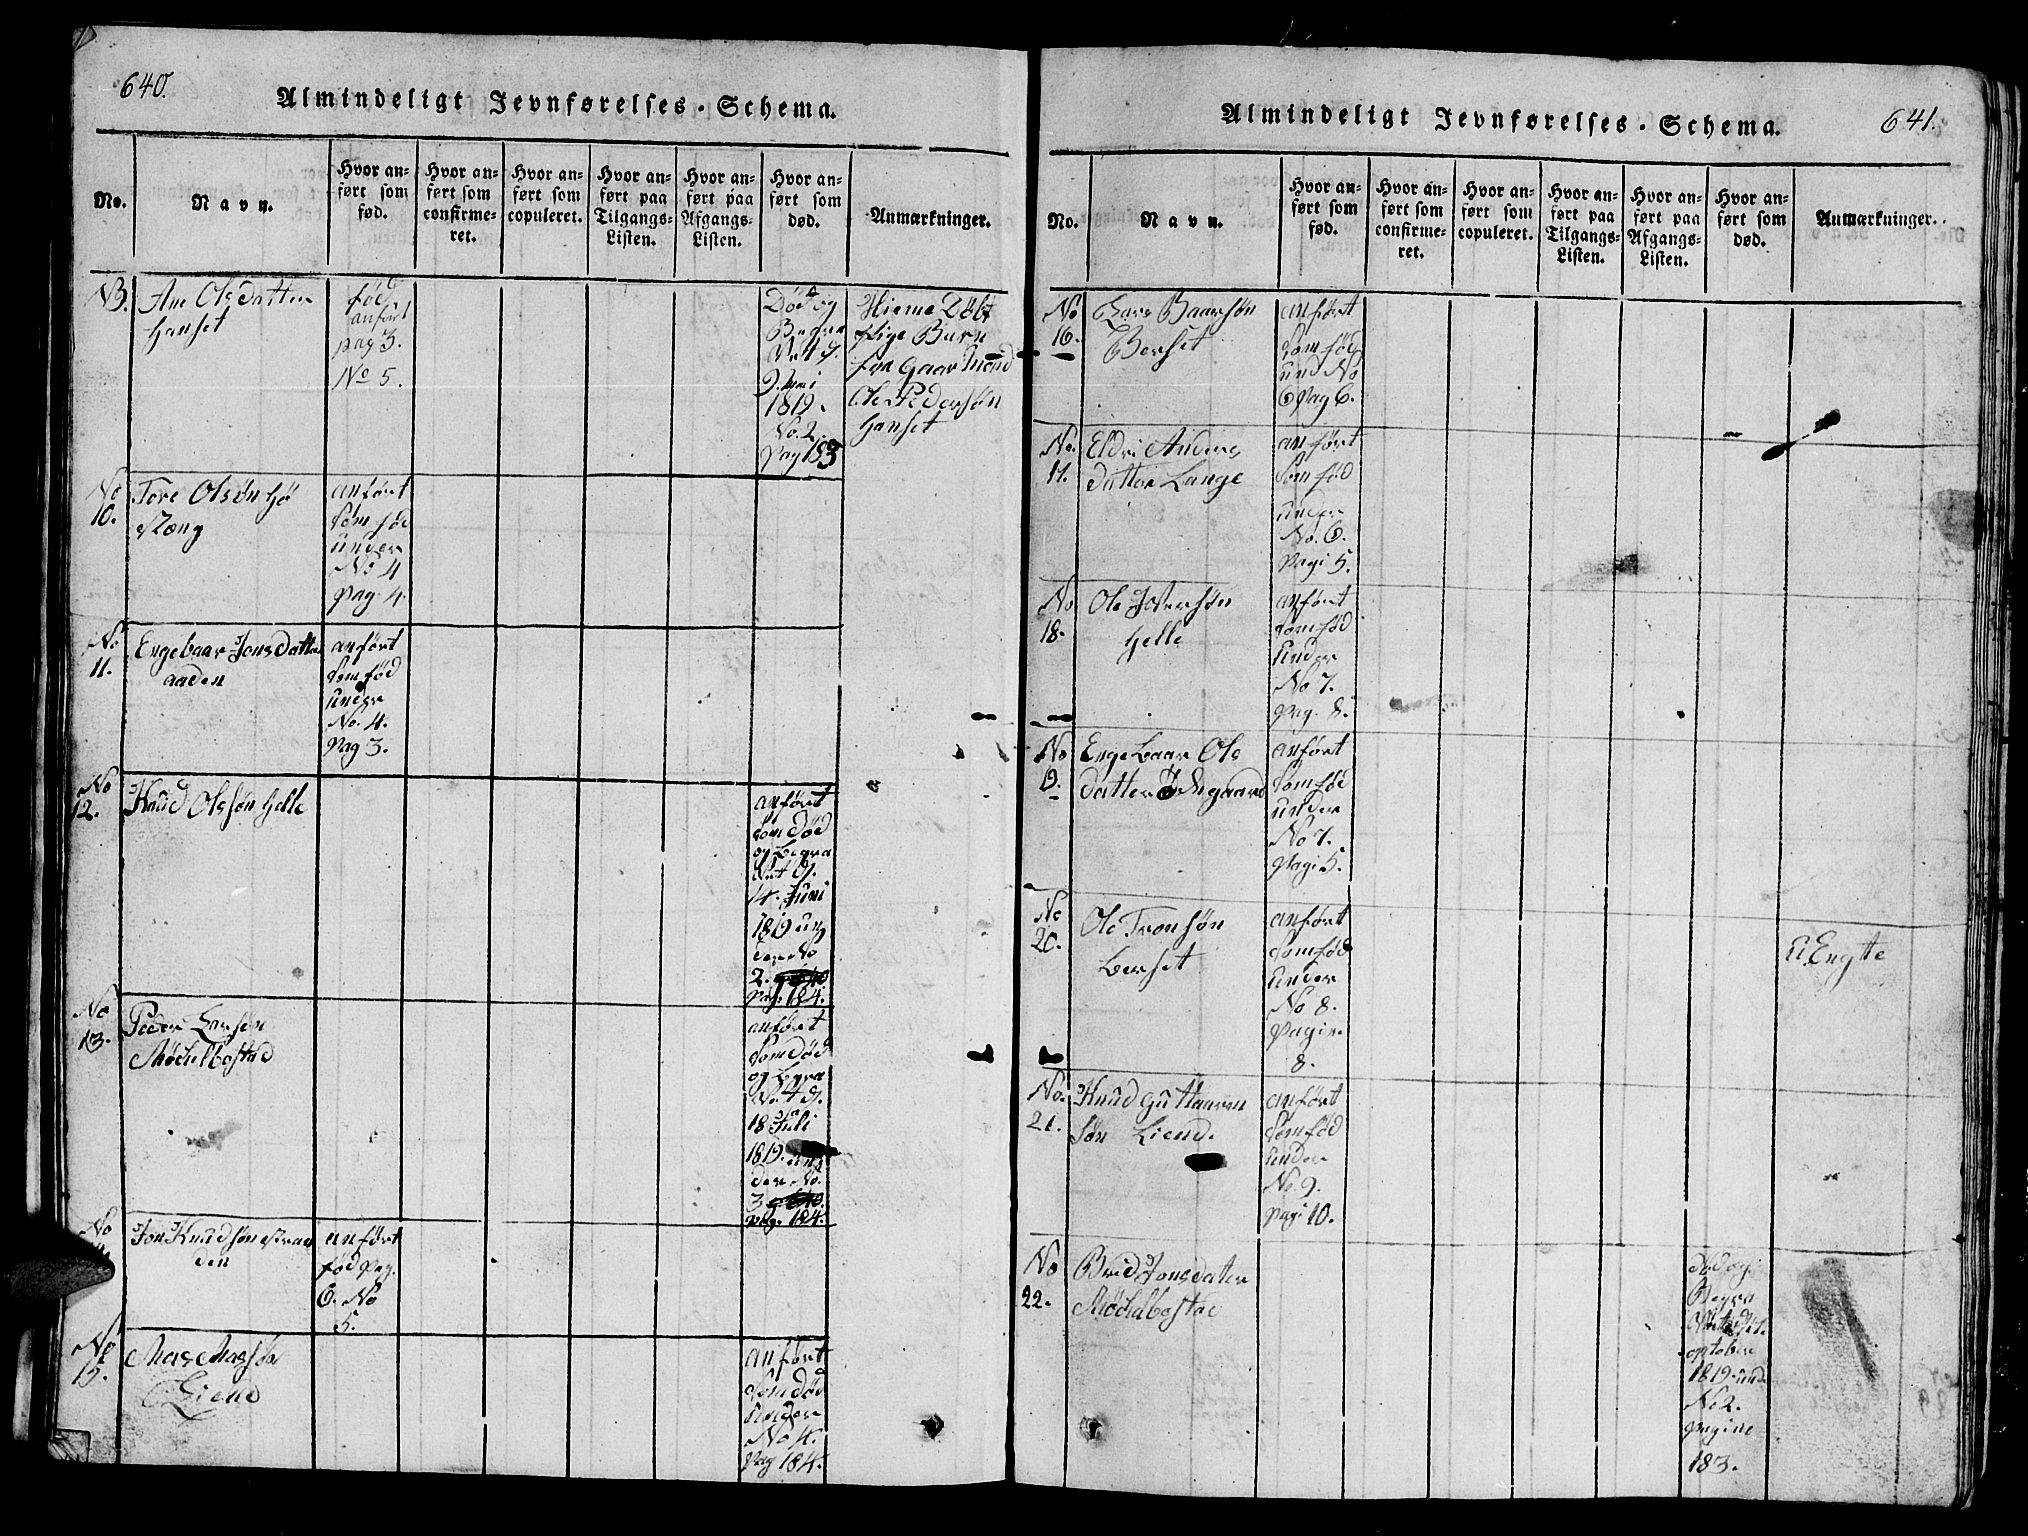 640.
Almindeligt Jevnførelses-Schema.
No.
Navn.
Hvor an-
ført som
fød.
Hvor an-
ført som
confirme-
ret.
Hvor an-
ført som
copuleret.
Hvor an-
ført paa
Tilgangs-
Listen.
Hvor an-
ført paa
Afgangs-
Listen.
Hvor an-
ført som
død.
Anmærkninger.
Ane Olsdatter
Hanset
fød
anført
pag 3.
No 5.
Død og
Begra
vet d.
9. Juni
1819.
No. 2.
Pag 183
Hieme Døbt
Pige Barn
fra Gaar Mand
Ole Pedersøn
Hanset
No
10.
Tore Olsøn Hø
stæng
anført
som fød
under
No 4
pag. 4.
No
11.
Engebaar Jonsdatter
aaden
anført
som fød
under
No. 4.
Pag 3.
No
12.
Knud Olssøn Helle
anført
som død
og begra
vet d.
14. Juni
1819 un
der No
2.
pag. 184.
No
13.
Peder Larsøn
Møchelbostad
anført
som død
og begra
vet d.
18 Juli
1819. un
der No.
3
pag. 184.
No
Jon Knudsøn stran
den
anført
fød Pag.
6. No
5.
No
15.
Mas Massøn
Liend
anført
som død
under
No 4.
Pag 184.
641.
Almindeligt Jevnførelses-Schema.
No.
Navn.
Hvor an-
ført som
fød.
Hvor an-
ført som
confirme-
ret.
Hvor an-
ført som
copuleret.
Hvor an-
ført paa
Tilgangs-
Listen.
Hvor an-
ført paa
Afgangs-
Listen.
Hvor an-
ført som
død.
Anmærkninger.
No
16.
Lars Baarsøn
Berset
anført
som fød
und No
6 Pag 6.
No.
17.
Eldri Anders
datter Lange
anført
som fød
under
No. 6.
Pagi 5.
No
18.
Ole Iversøn
Helle
anført
som fød
under
No 7.
Pag. 8.
No
19.
Engebaar Ols
datter Ødegaard
anført
som fød
under
No 7.
Pagi 5.
No
20.
Ole Tronsøn
Berset
anført
som fød
under
No 8.
Pagin.
8.
U. Engte
No.
21.
Knud Guttaarm
søn Liend.
anført
som fød
under
No 9.
Pagi 10.
No
22.
Brid Jonsdater
Møchelbostad
død og
Begra
october
1819 und
No 2.
pagine
183.